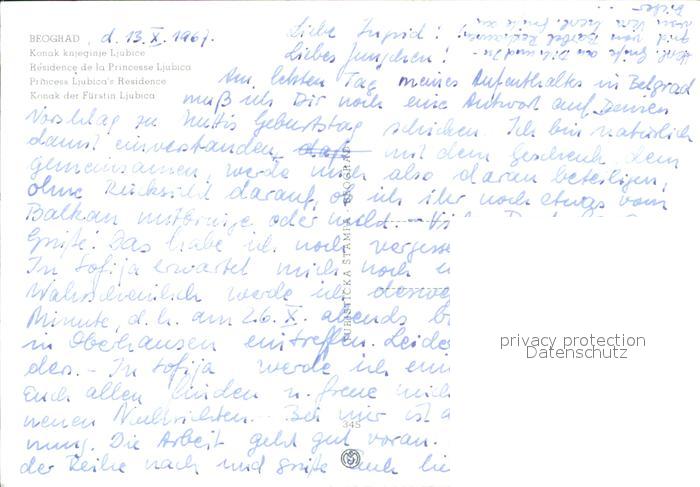 BEOGRAD, d. 13.X.1967.
Konak knjeginje Ljubice
Résidence de la Princesse Ljubica
Princess Ljubica's Residence
Konak der Fürstin Ljubica
Liebe Ingrid!
Liebes Jungchen!
Am letzten Tag meines Aufenthalts in Belgrad
muß ich Dir noch eine Antwort auf Deinen
Vorschlag zu Muttis Geburtstag schicken. Ich bin natürlich
damit einverstanden, daß mit dem Geschenk, dem
gemeinsamen, werde mich also daran beteiligen,
ohne Rücksicht darauf, ob ich ihr noch etwas vom
Balkan mitbringe oder nicht. -
Grüße! Das habe ich noch vergesse
In Sofija erwartet mich noch
Wahrscheinlich werde ich
Minute, d.h. am 26.X. abends
in Oberhausen eintreffen. Leide
der. - In Sofija werde ich
Euch allen finden u. freue mich
neuen Nachrichten. - Bei mir ist
nung. Die Arbeit geht gut voran.
der Reihe nach und grüße Euch
TURISTICKA STAMPA - BEOGRAD
345
privacy protection
Datenschutz